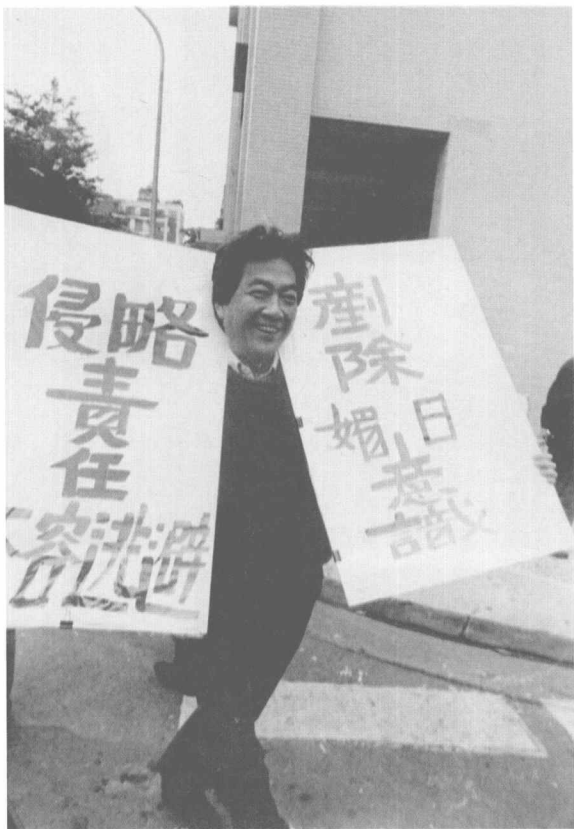 侵略
責任
不容逃避
剷除
媚日
意識